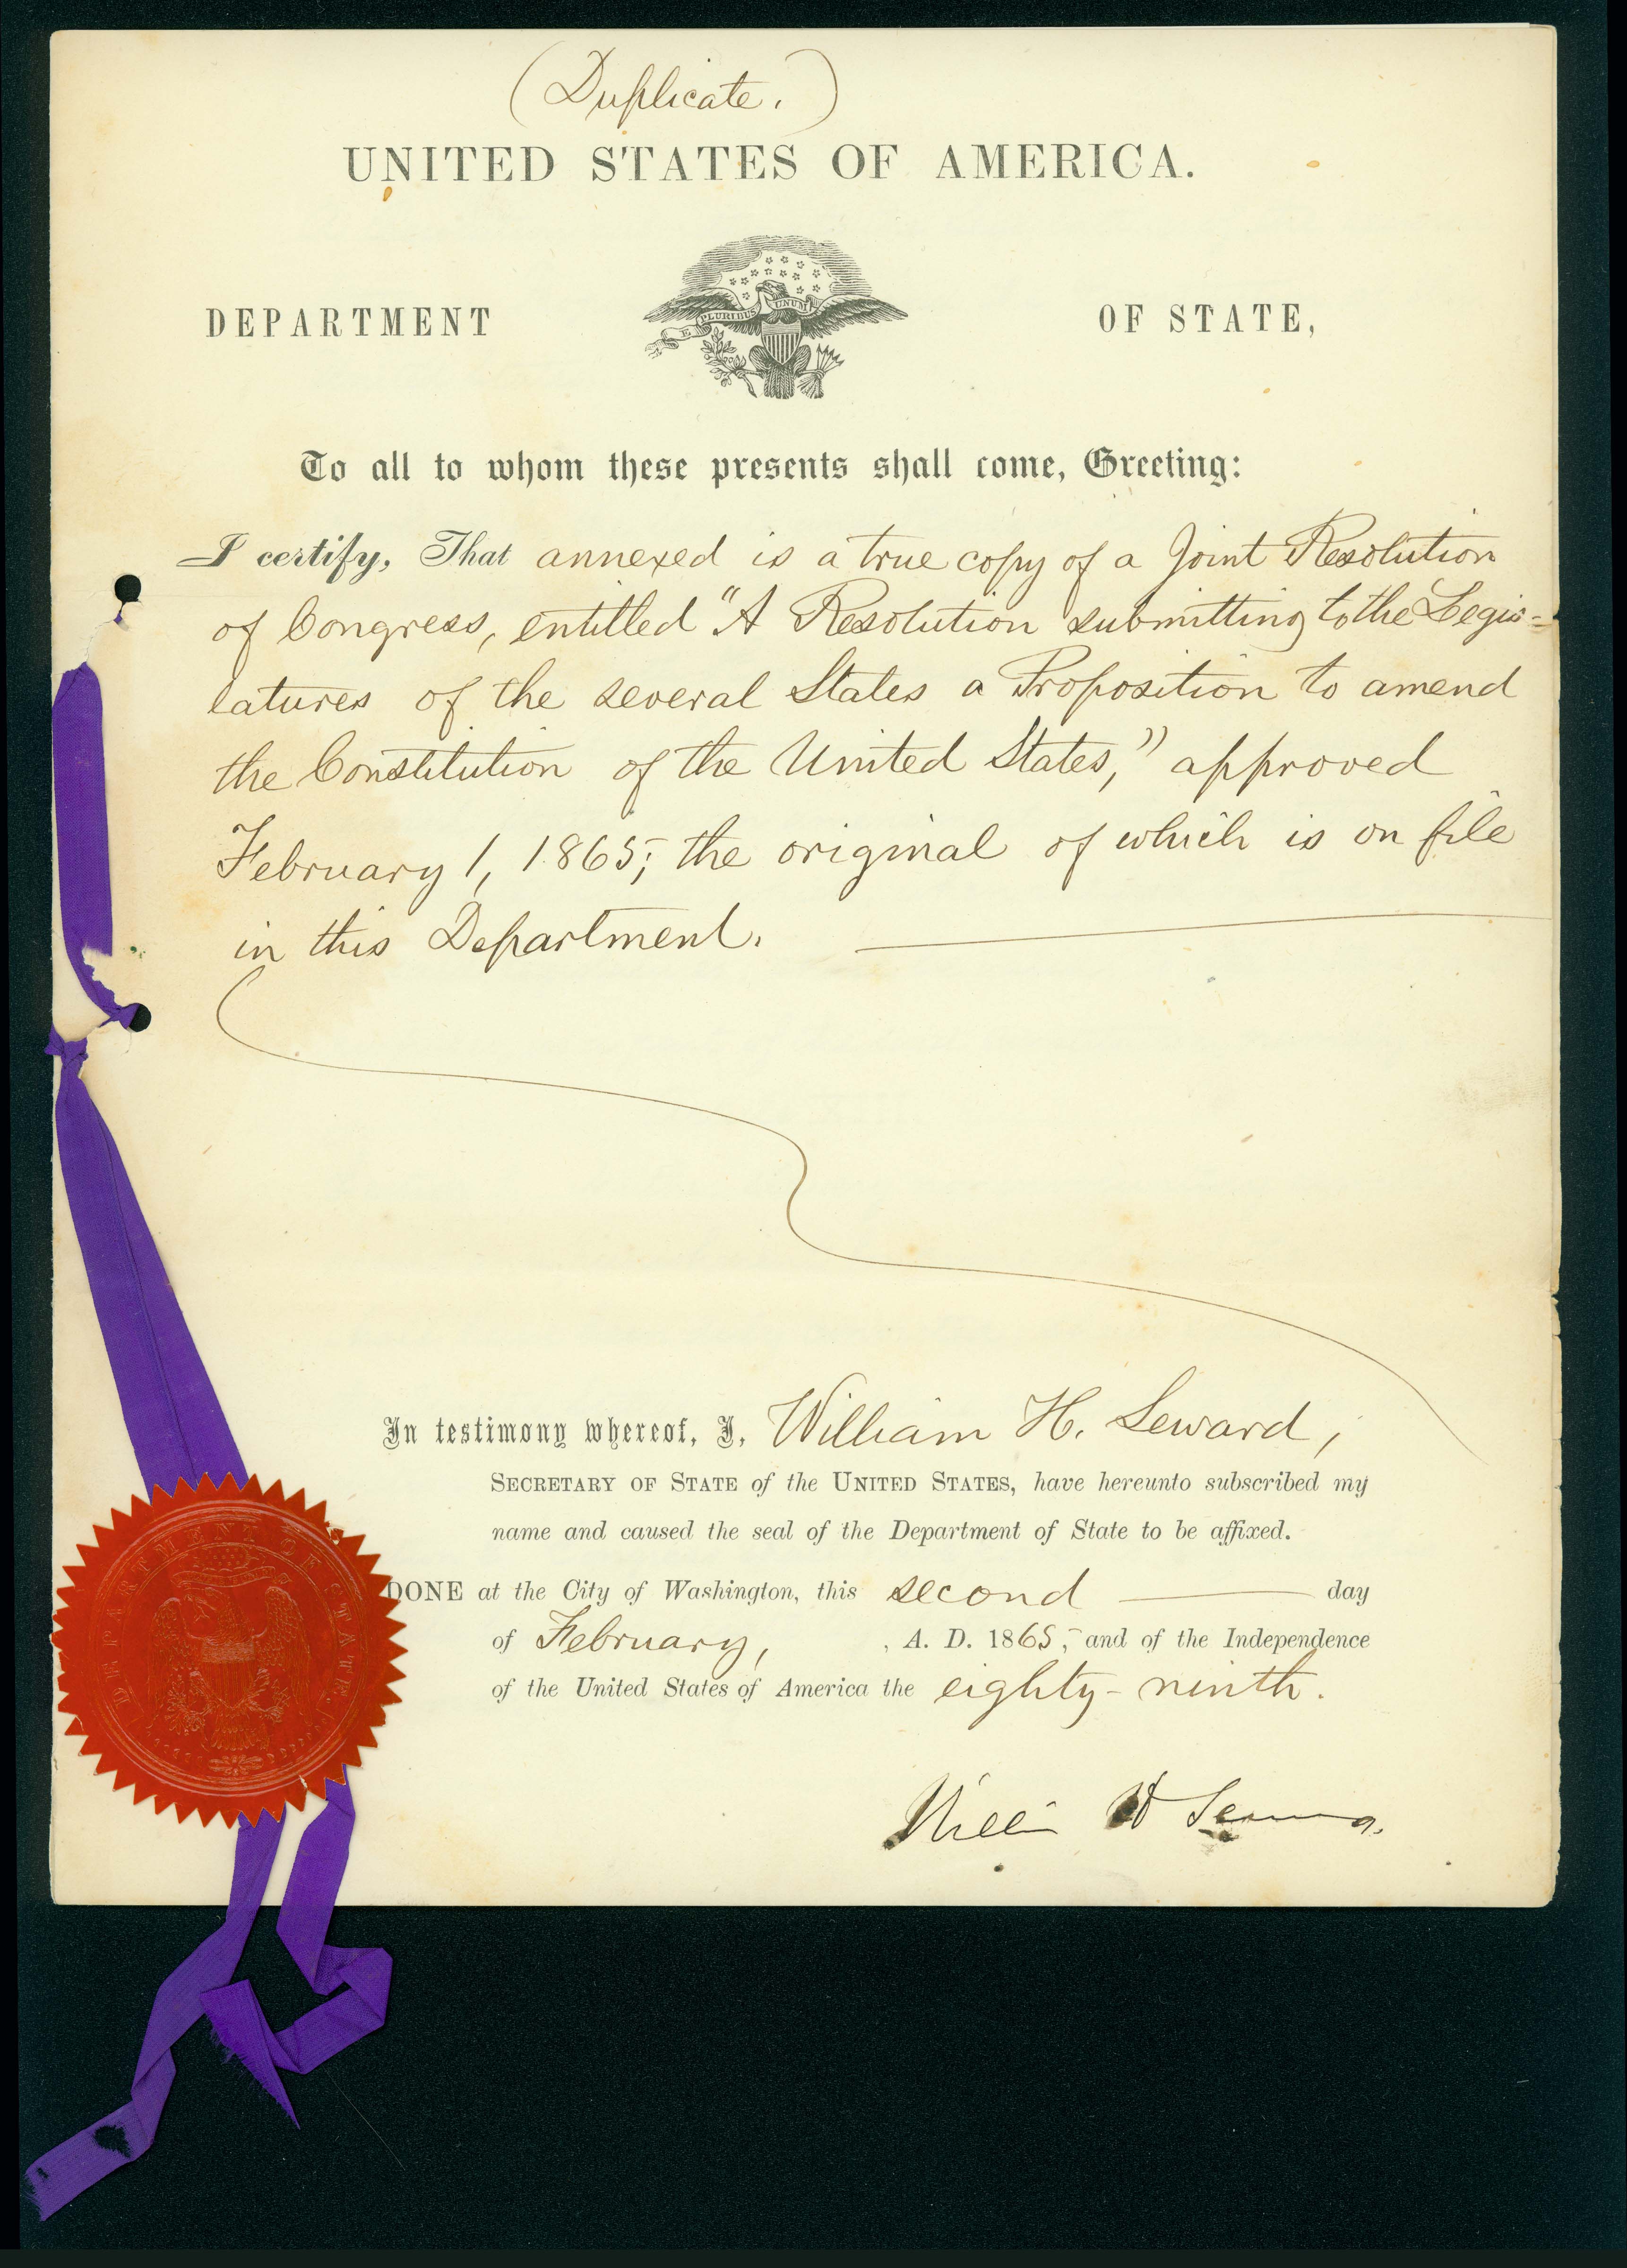 (Duplicate.)
UNITED STATES OF AMERICA.
E PLURIBUS UNUM
DEPARTMENT OF STATE,
To all to whom these presents shall come, Greeting:
I certify, That annexed is a true copy of a Joint Resolution
of Congress, entitled "A Resolution submitting to the Legis=
latures of the several States a Proposition to amend
the Constitution of the United States," approved
February 1, 1865; the original of which is on file
in this Department.
In testimony whereof, I, William H. Seward,
SECRETARY OF STATE of the UNITED STATES, have hereunto subscribed my
name and caused the seal of the Department of State to be affixed.
DONE at the City of Washington, this second day
of February, , A. D. 1865, and of the Independence
of the United States of America the eighty-ninth.
DEPARTMENT OF STATE
William H Seward.